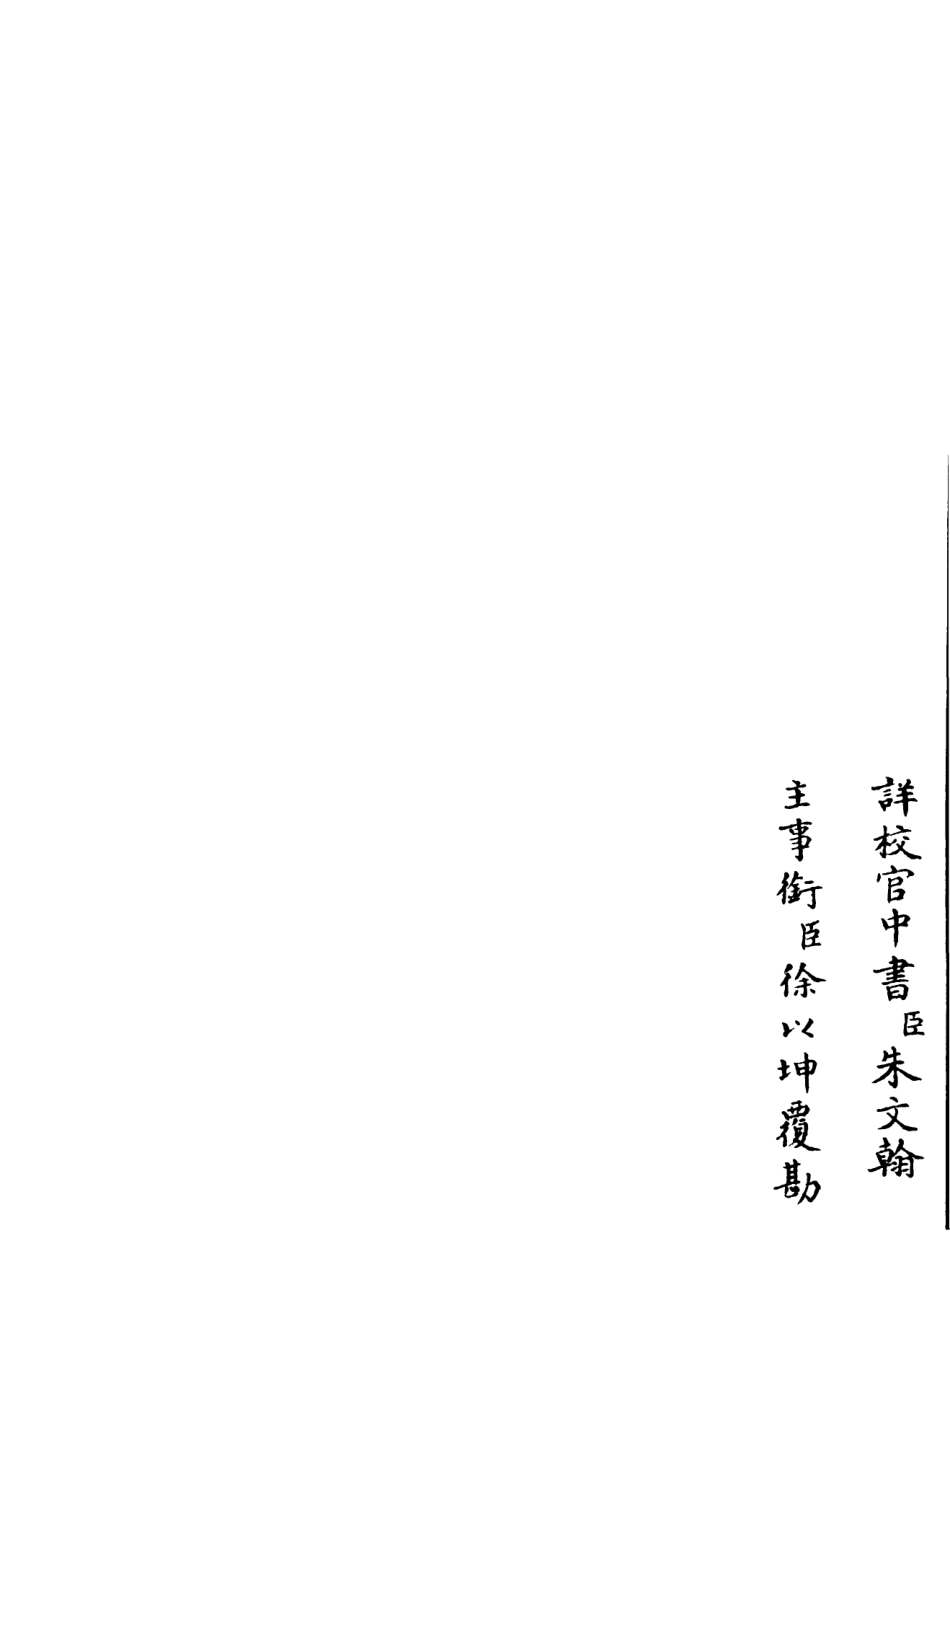 詳校官中書臣朱文翰
主事銜臣徐以坤覆勘